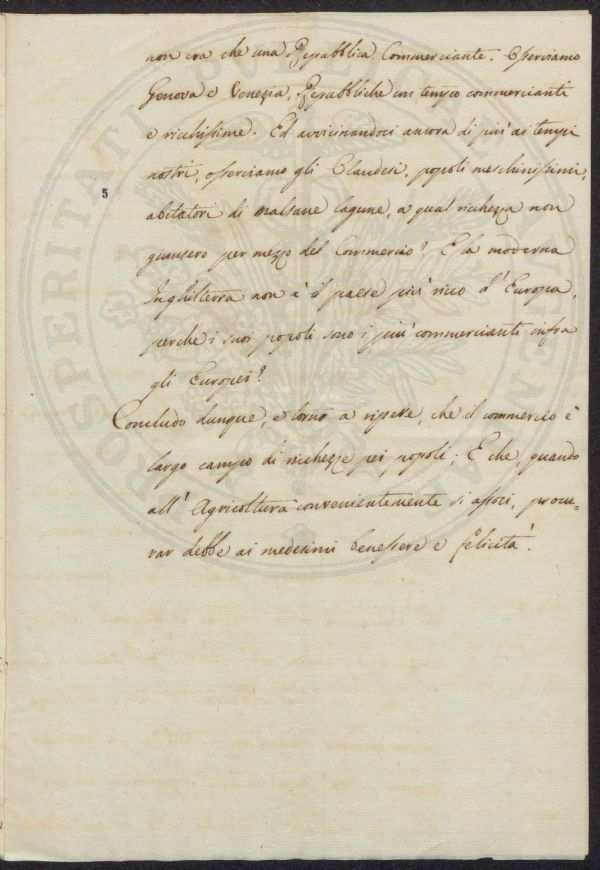 non era che una Repubblica Commerciante. Osserviamo
Genova e Venezia, Repubbliche un tempo commercianti
e ricchissime. Ed avvicinandoci ancora di più ai tempi
nostri, osserviamo gli Olandesi, popoli meschinissimi,
5
abitatori di malsane lagune, a qual richezza non
giunsero per mezzo del Commercio? E la moderna
Inghilterra non è il paese più ricco d'Europa,
perche i suoi popoli sono i più commercianti infra
gli Europei?
Concludo dunque, e torno a ripete, che il commercio è
largo campo di richezze pei popoli; E che, quando
all'Agricoltura convenientemente si associ, procu=
rar debbe ai medesimi benessere e felicità.
PROSPERITATI PUBLICAE AUGENDAE